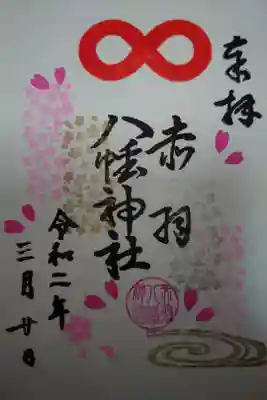 奉拝
赤羽
八幡神社
令和二年
三月廿日